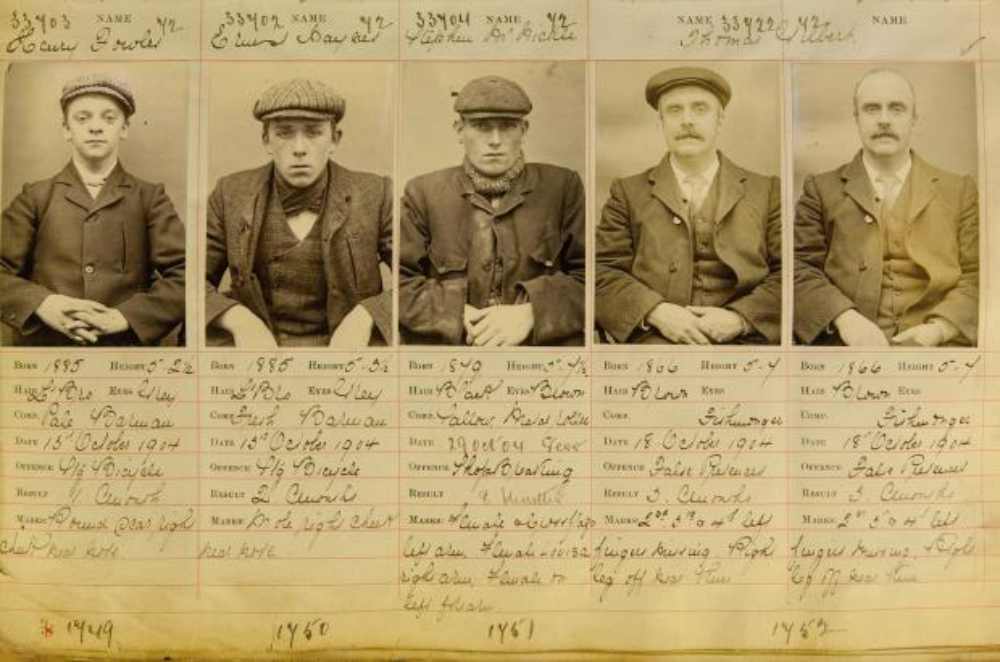 33703 NAME 72 33702 NAME 72 33704 NAME 72 NAME 33722 72 NAME
Henry Fowler Haynes Stephen Thomas Gilbert
BORN 1885 HEIGHT 5-2½ BORN 1885 HEIGHT 5-3½ BORN 1879 HEIGHT 5-4½ BORN 1866 HEIGHT 5-4 BORN 1866 HEIGHT 5-4
HAIR L Bro EYES Grey HAIR L Bro EYES Grey HAIR Black EYES Brown HAIR Brown EYES HAIR Brown EYES
COMP. Pale Barman COMP. Fresh Barman COMP. Sallow COMP. Fishmonger COMP. Fishmonger
DATE 15 October 1904 DATE 15 October 1904 DATE 29 Oct 04 DATE 18 October 1904 DATE 18 October 1904
OFFENCE Bicycle OFFENCE Bicycle OFFENCE Shopbreaking OFFENCE False Pretences OFFENCE False Pretences
RESULT 1 C Month RESULT 2 C Months RESULT RESULT 3 C Months RESULT 3 C Months
MARKS Round scar right MARKS Mole right cheek MARKS Female MARKS 2nd 3rd & 4th left MARKS 2nd 3rd & 4th left
cheek near nose near nose left arm, Female fingers missing. Right fingers missing. Right
right arm, Female on leg off near knee leg off near knee
left forearm
1749 1750 1751 1752